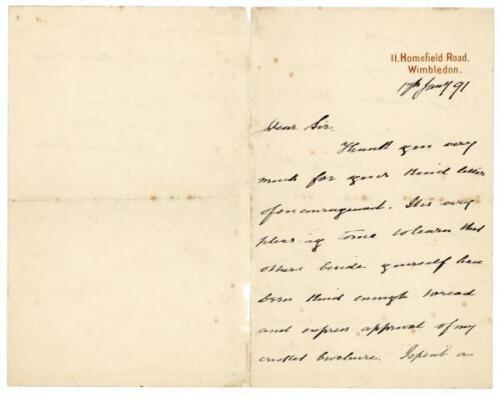 11, Homefield Road.
Wimbledon.
17th Jany 91
Dear Sir.
Thank you very
much for your kind letter
of encouragement. It is very
pleasing to me to learn that
others beside yourself have
been kind enough to read
and express approval of my
cricket brochure. I spent a